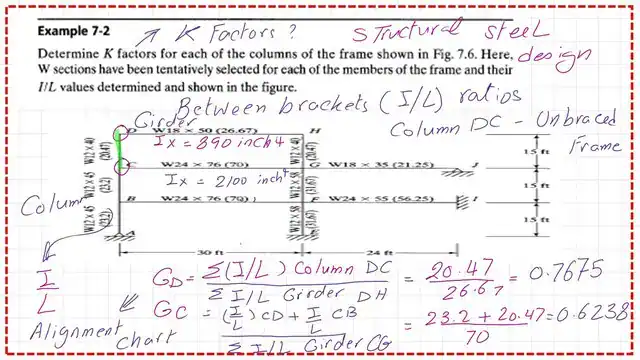 Example 7-2
↗ K Factors ?
structural steel
design
Determine K factors for each of the columns of the frame shown in Fig. 7.6. Here,
W sections have been tentatively selected for each of the members of the frame and their
I/L values determined and shown in the figure.
Between brackets (I/L) ratios
Girder
Column DC - Unbraced
Frame
D W18 × 50 (26.67) H
Ix = 890 inch4
W12 × 40
(20.47)
W12 × 40
(20.47)
15 ft
C W24 × 76 (70) G W18 × 35 (21.25) J
Ix = 2100 inch4
W12 × 45
(23.2)
W12 × 58
(31.67)
15 ft
Column
B W24 × 76 (70) F W24 × 55 (56.25) I
W12 × 45
(23.2)
W12 × 58
(31.67)
15 ft
A
30 ft 24 ft
I
L
Alignment
Chart
GD = Σ(I/L) Column DC / Σ I/L Girder DH = 20.47 / 26.67 = 0.7675
GC = (I/L) CD + I/L CB / Σ I/L Girder CG = 23.2 + 20.47 / 70 = 0.6238